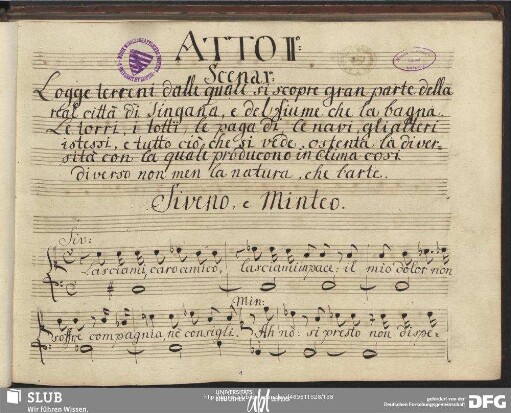 ATTO II:
Scena I.
Logge terreni dalle quali si scopre gran parte della
real città di Singana, e del fiume che la bagna.
Le torri, i totti, le pagadi, le navi, gli alberi
istessi, e tutto ciò, che si vede, ostenta la diver-
sità con la quale producono in clima così
diverso non men la natura, che l'arte.
Siveno, e Minteo.
Siv:
Lasciami, caro amico, lasciami in pace: il mio dolor non
Min:
soffre compagnia, ne consigli. Ah nò: si presto non dispe-
SLUB
Wir führen Wissen.
UNIVERSITÄTS
gefördert von der
Deutschen Forschungsgemeinschaft
DFG